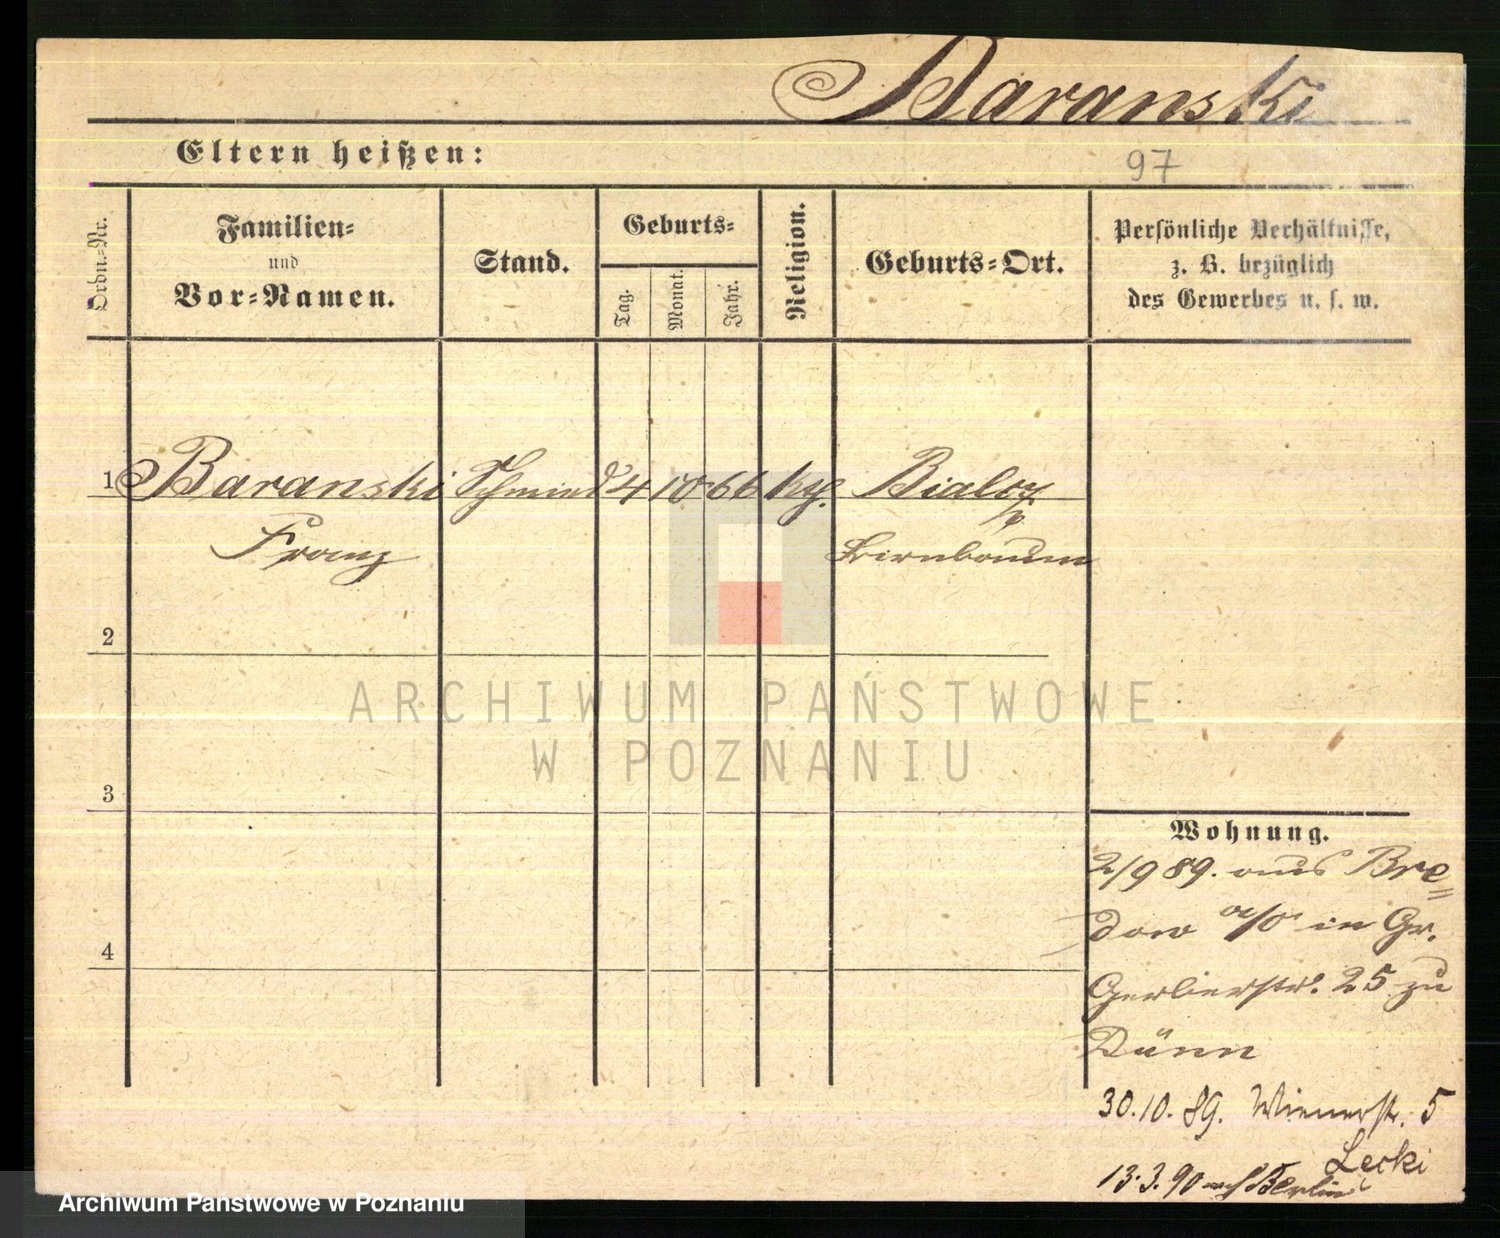 Baranski
Eltern heißen:
97
Ordn.-Nr.
Familien-
und
Vor-Namen.
Stand.
Geburts-
Tag.
Monat.
Jahr.
Religion.
Geburts-Ort.
Persönliche Verhältnisse,
z. B. bezüglich
des Gewerbes u. s. w.
1 Baranski Schmied 4 10 66 kth. Bialcz
Franz Birnbaum
2
ARCHIWUM PAŃSTWOWE
W POZNANIU
3
Wohnung.
2/9 89. aus Bre=
dow a/O in Gr.
Gerberstr. 25 zu
Dünn
4
30.10.89. Wienerstr. 5
Lecki
13.3.90 Berlin
Archiwum Państwowe w Poznaniu